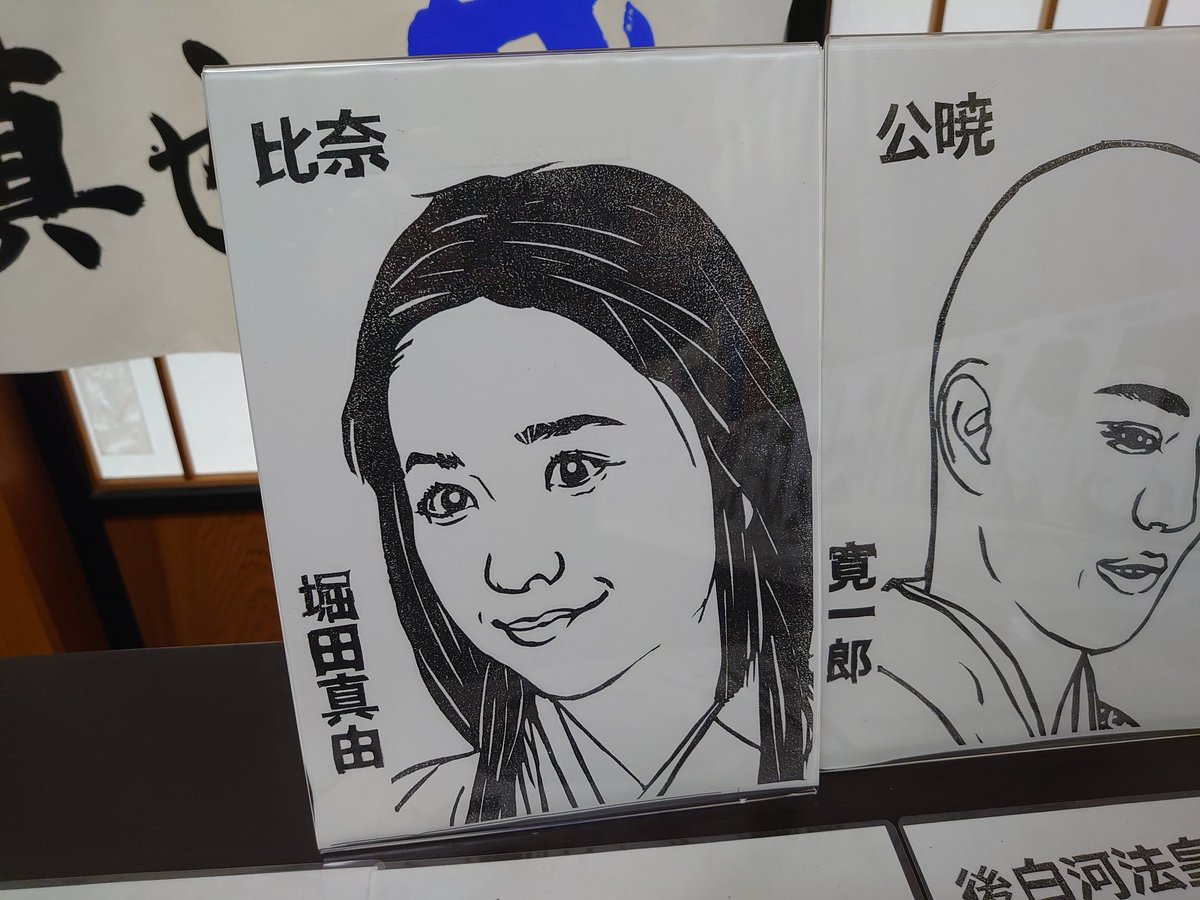 比奈
堀田真由
公暁
寛一郎
後白河法皇